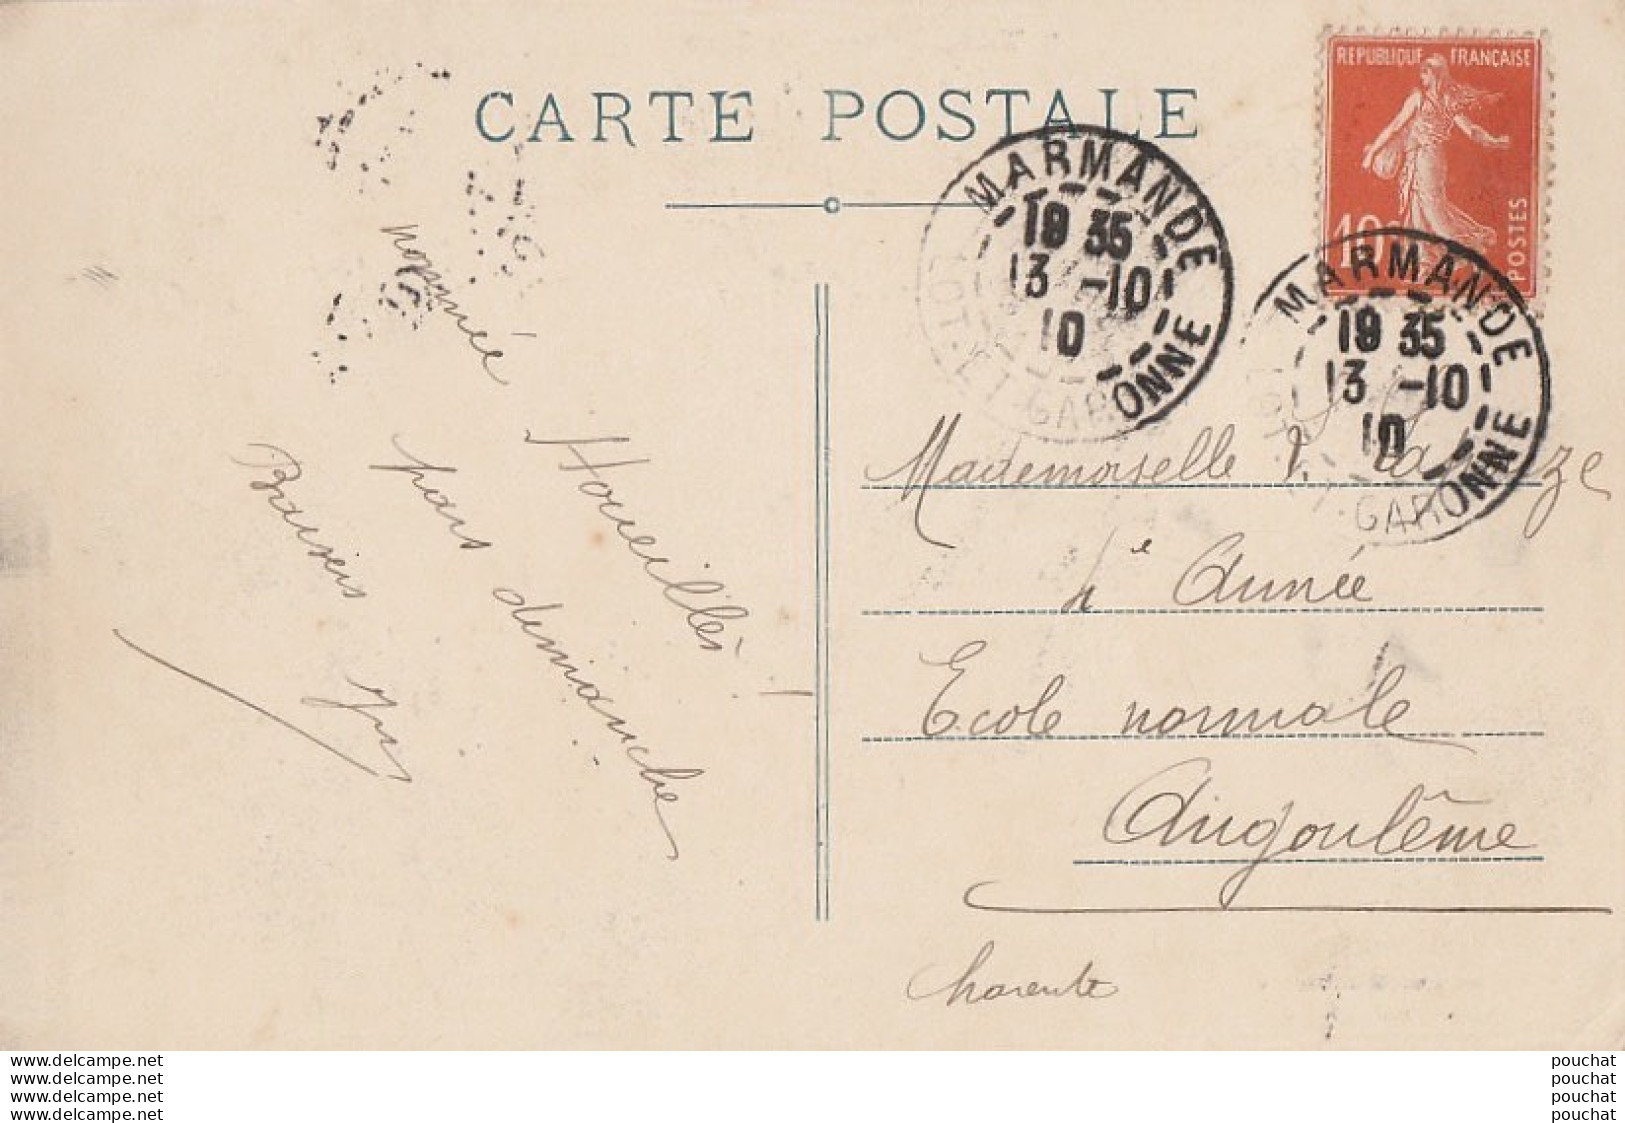 CARTE POSTALE
REPUBLIQUE FRANÇAISE
10c
POSTES
MARMANDE
19 35
13 -10
10
LOT-ET-GARONNE
MARMANDE
19 35
13 -10
10
LOT-ET-GARONNE
nommée Houeillès !
pars dimanche
Baisers
Mademoiselle
4e Année
Ecole normale
Angoulême
Charente
www.delcampe.net
www.delcampe.net
www.delcampe.net
www.delcampe.net
pouchat
pouchat
pouchat
pouchat